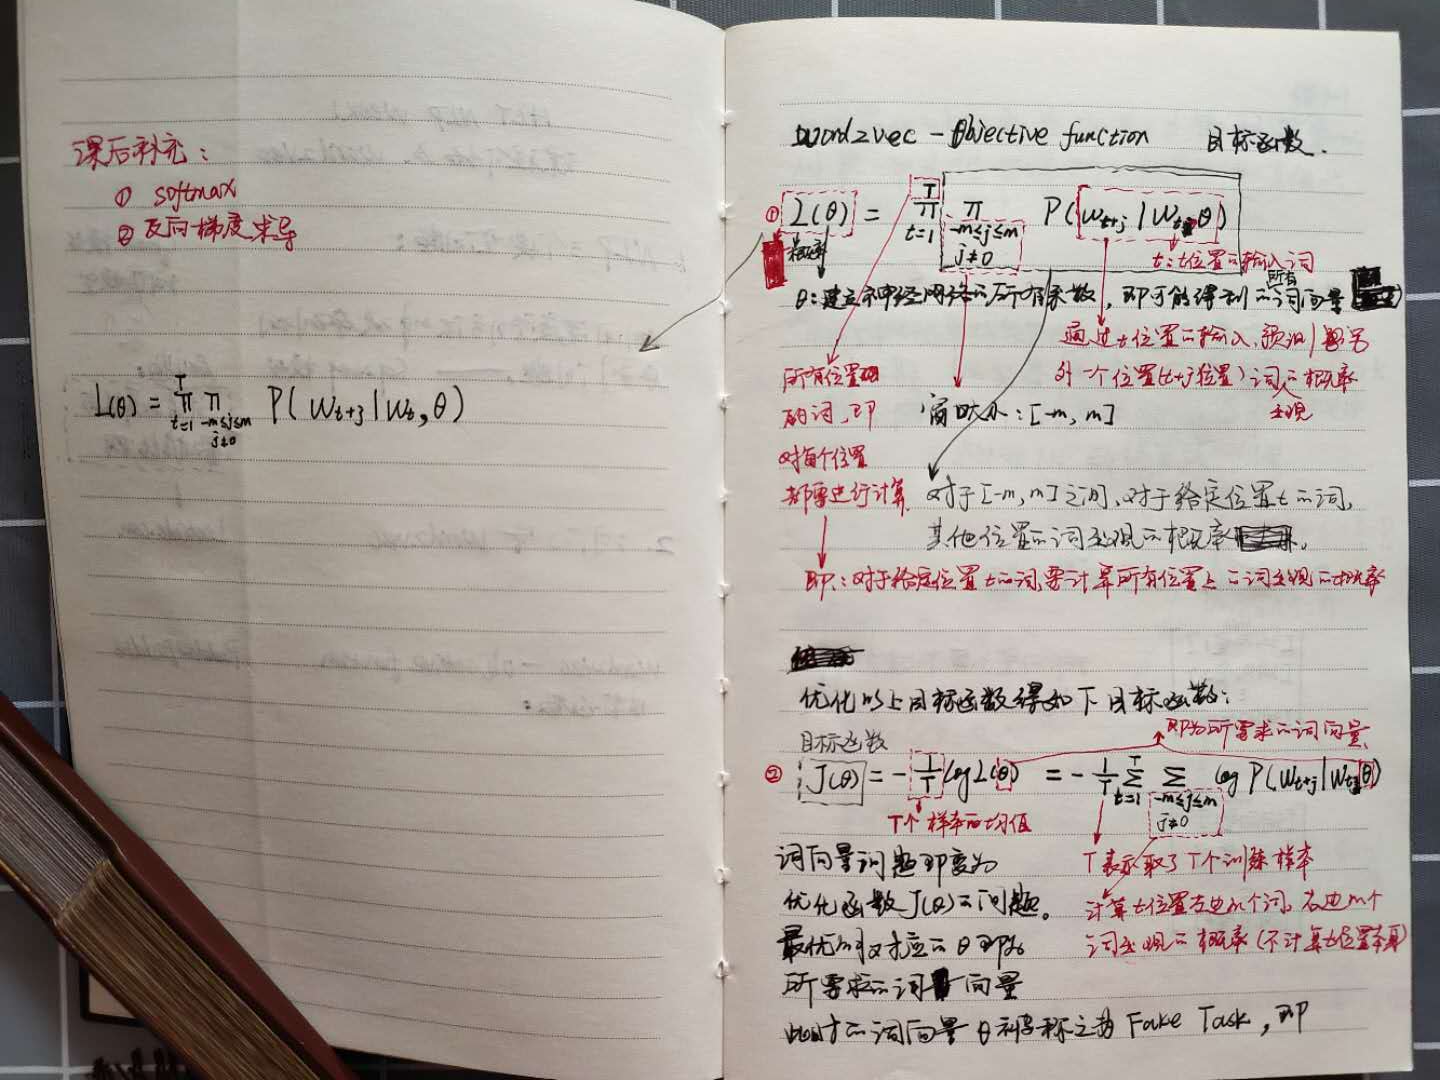 课后补充：
① softmax
② 反向梯度求导
L(θ) = π π P(Wt+j | Wt, θ)
t=1 -m≤j≤m
j≠0
word2vec - Objective function 目标函数.
① L(θ) = π π P(Wt+j | Wt, θ)
t=1 -m≤j≤m
j≠0
概率
t: t位置的输入词
θ: 建立神经网络的所有系数, 即可能得到的所有词向量
通过t位置的输入, 预测
另外一个位置(t+j位置)词出现的概率
所有位置
的词, 即
对每个位置
都要进行计算
窗口大小: [-m, m]
对于[-m, m]之间, 对于给定位置t的词,
其他位置的词出现的概率
即: 对于给定位置t的词要计算所有位置上的词出现的概率
优化以上目标函数得如下目标函数:
即为所需求的词向量
目标函数
② J(θ) = - 1/T log L(θ) = - 1/T Σ Σ log P(Wt+j | Wt, θ)
t=1 -m≤j≤m
j≠0
T个样本的均值
T表示取了T个训练样本
计算t位置左边m个词, 右边m个
词出现的概率(不计算t位置本身)
词向量问题即变为
优化函数J(θ)的问题。
最优时对应的θ即为
所需求的词向量
此时的词向量θ被称之为 Fake Task, 即